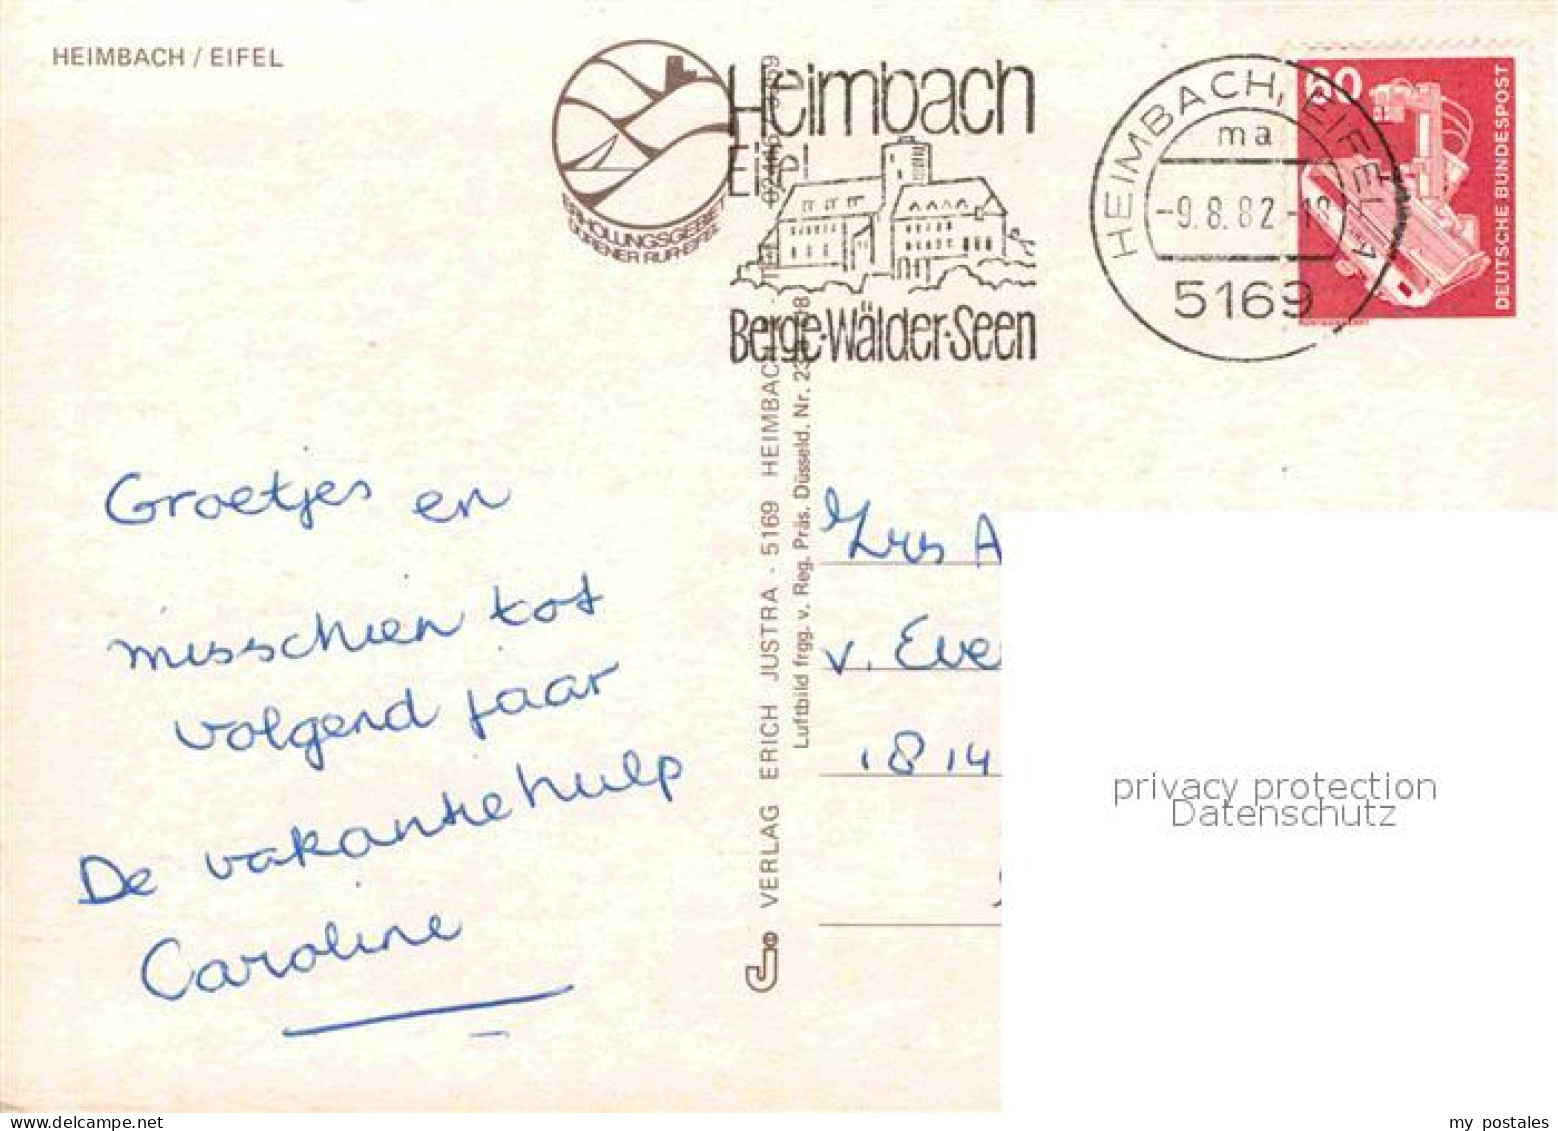 HEIMBACH / EIFEL
Heimbach
Eifel
ERHOLUNGSGEBIET
DÜRENER RUR-EIFEL
Berge·Wälder·Seen
HEIMBACH, EIFEL 1
ma
-9.8.82-18
5169
60
DEUTSCHE BUNDESPOST
Groetjes en
misschien tot
volgend jaar
De vakantiehulp
Caroline
VERLAG ERICH JUSTRA - 5169 HEIMBACH
Luftbild frgg. v. Reg. Präs. Düsseld. Nr.
A
v. Eve
1814
privacy protection
Datenschutz
my postales